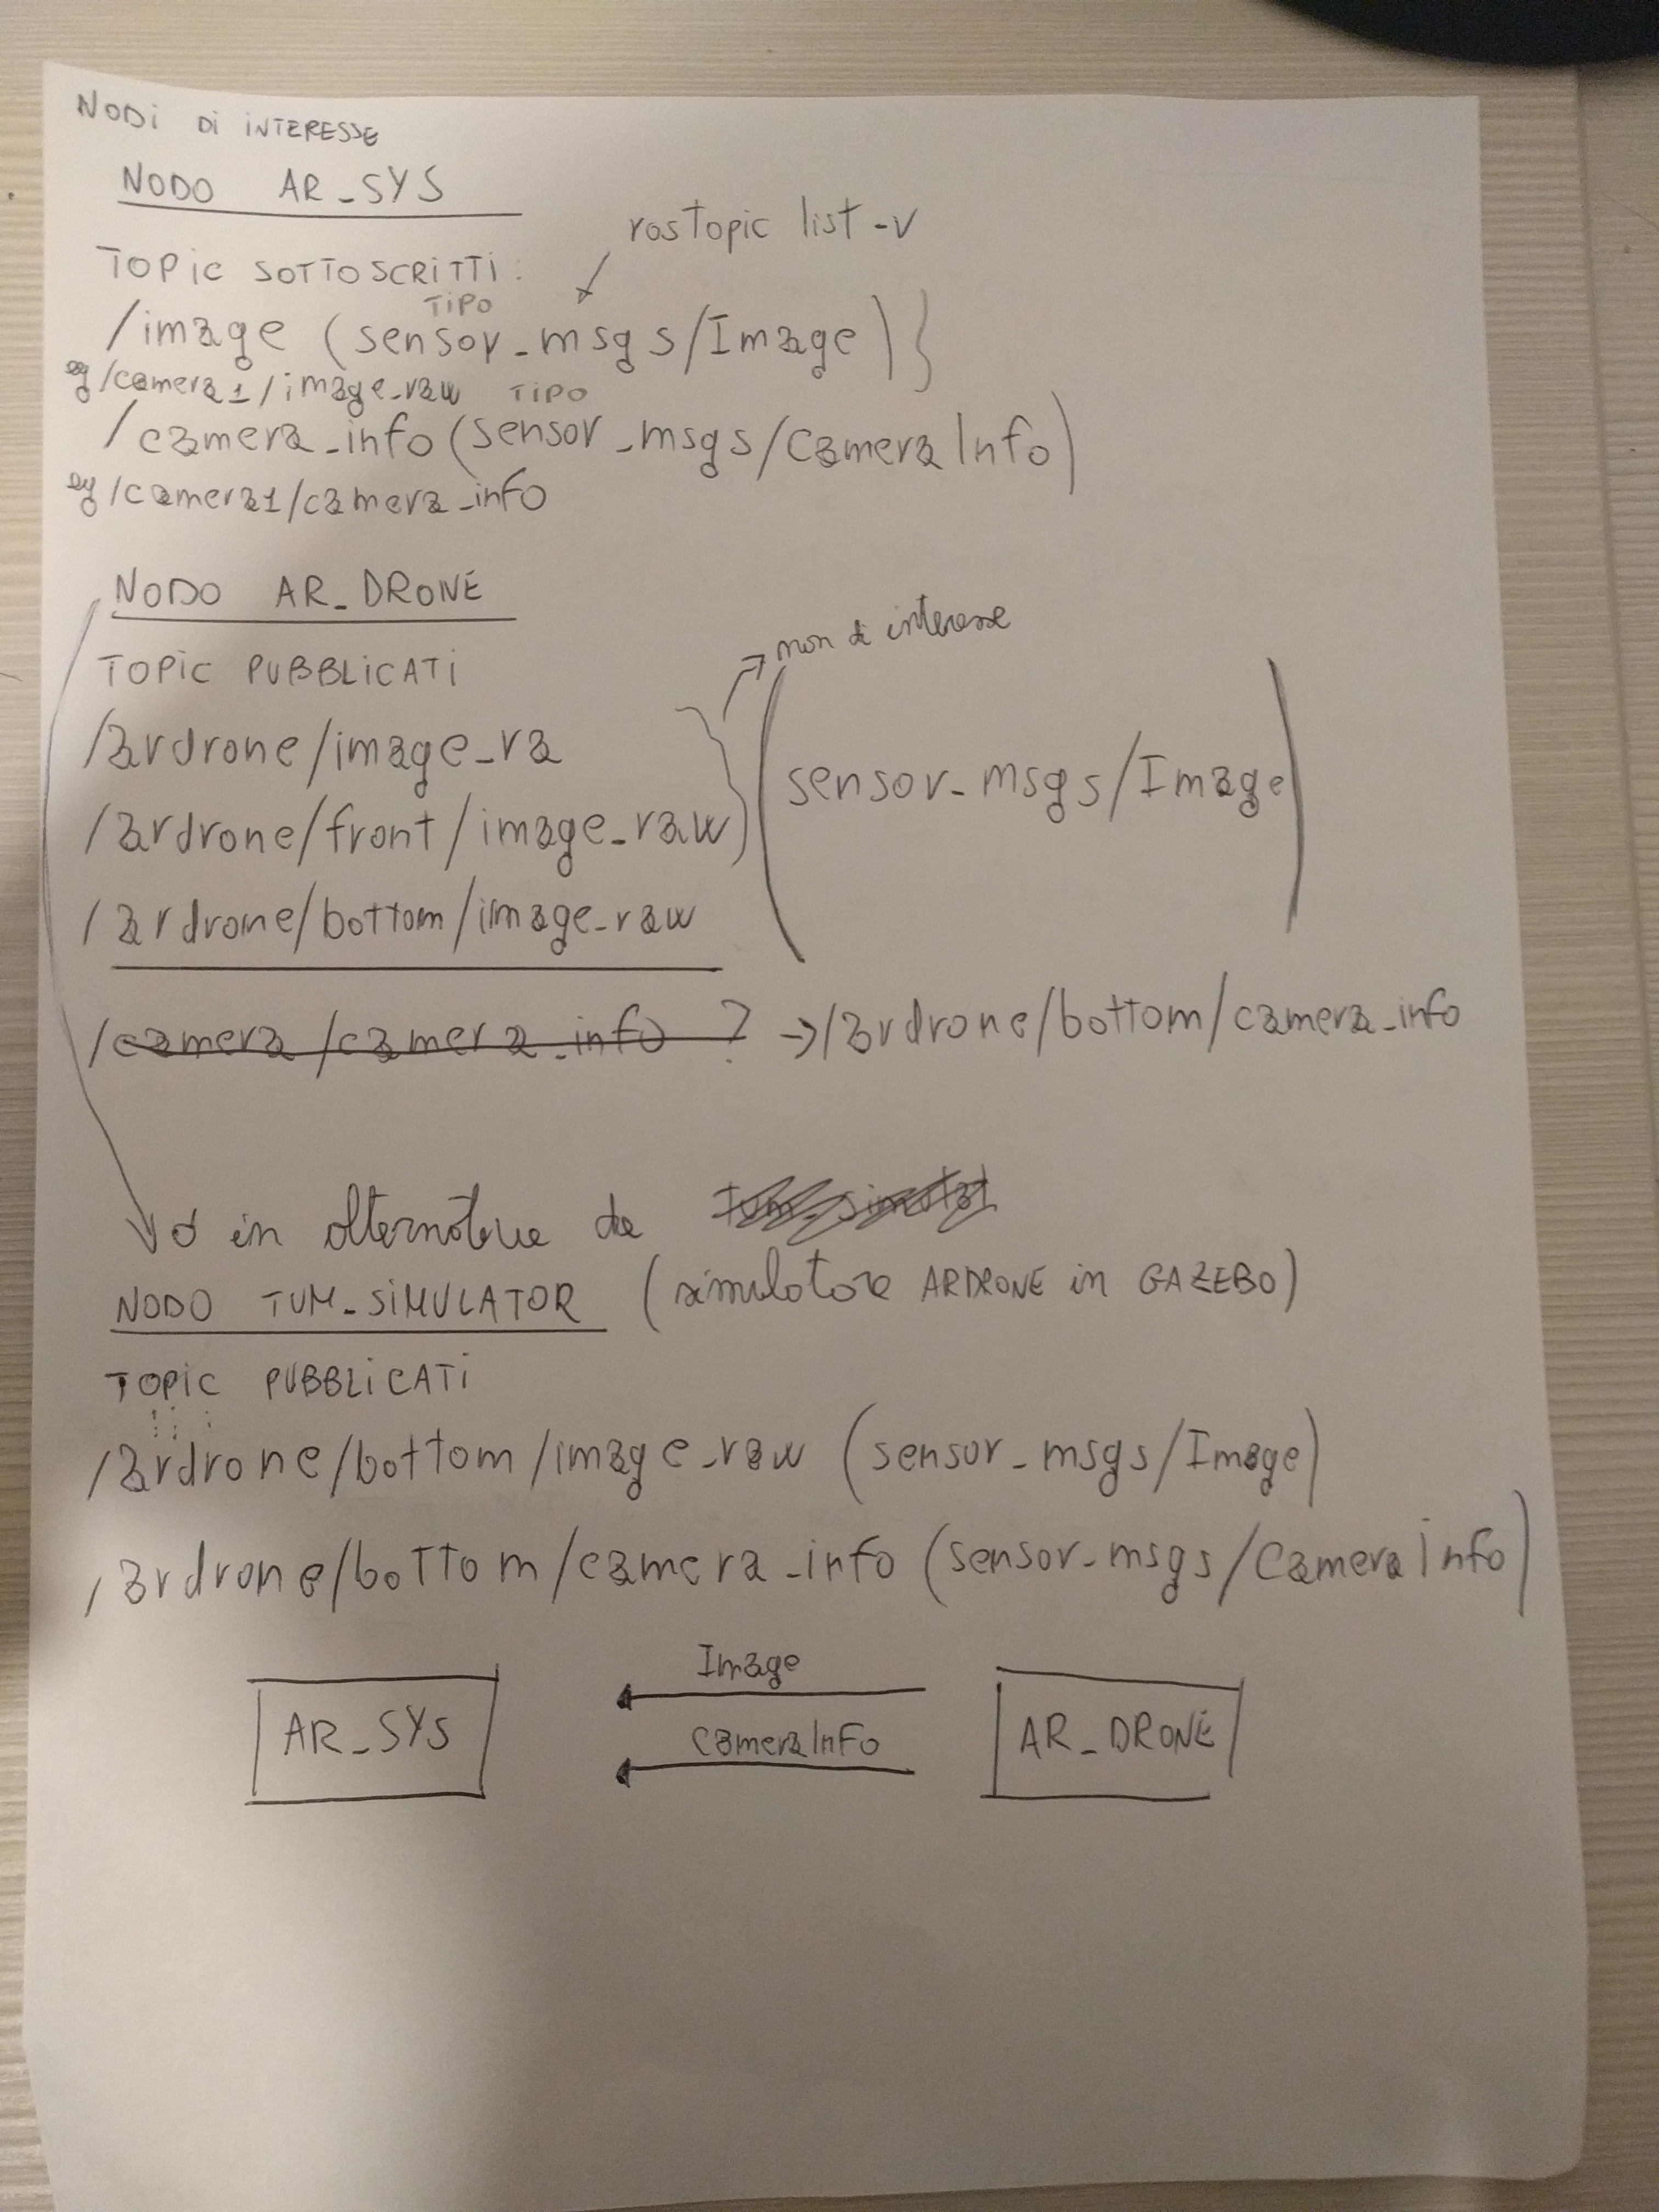 NODI DI INTERESSE
NODO AR_SYS
rostopic list -v
TOPIC SOTTOSCRITTI:
TIPO
/image (sensor_msgs/Image) }
eg /camera1/image_raw TIPO
/camera_info (sensor_msgs/CameraInfo)
eg /camera1/camera_info
NODO AR_DRONE
→ non di interesse
TOPIC PUBBLICATI
/ardrone/image_ra
/ardrone/front/image_raw
(sensor_msgs/Image)
/ardrone/bottom/image_raw
/camera/camera_info ? → /ardrone/bottom/camera_info
o in alternativa da tum_simulat
NODO TUM_SIMULATOR (simulatore ARDRONE in GAZEBO)
TOPIC PUBBLICATI
/ardrone/bottom/image_raw (sensor_msgs/Image)
/ardrone/bottom/camera_info (sensor_msgs/CameraInfo)
Image
AR_SYS
CameraInfo
AR_DRONE